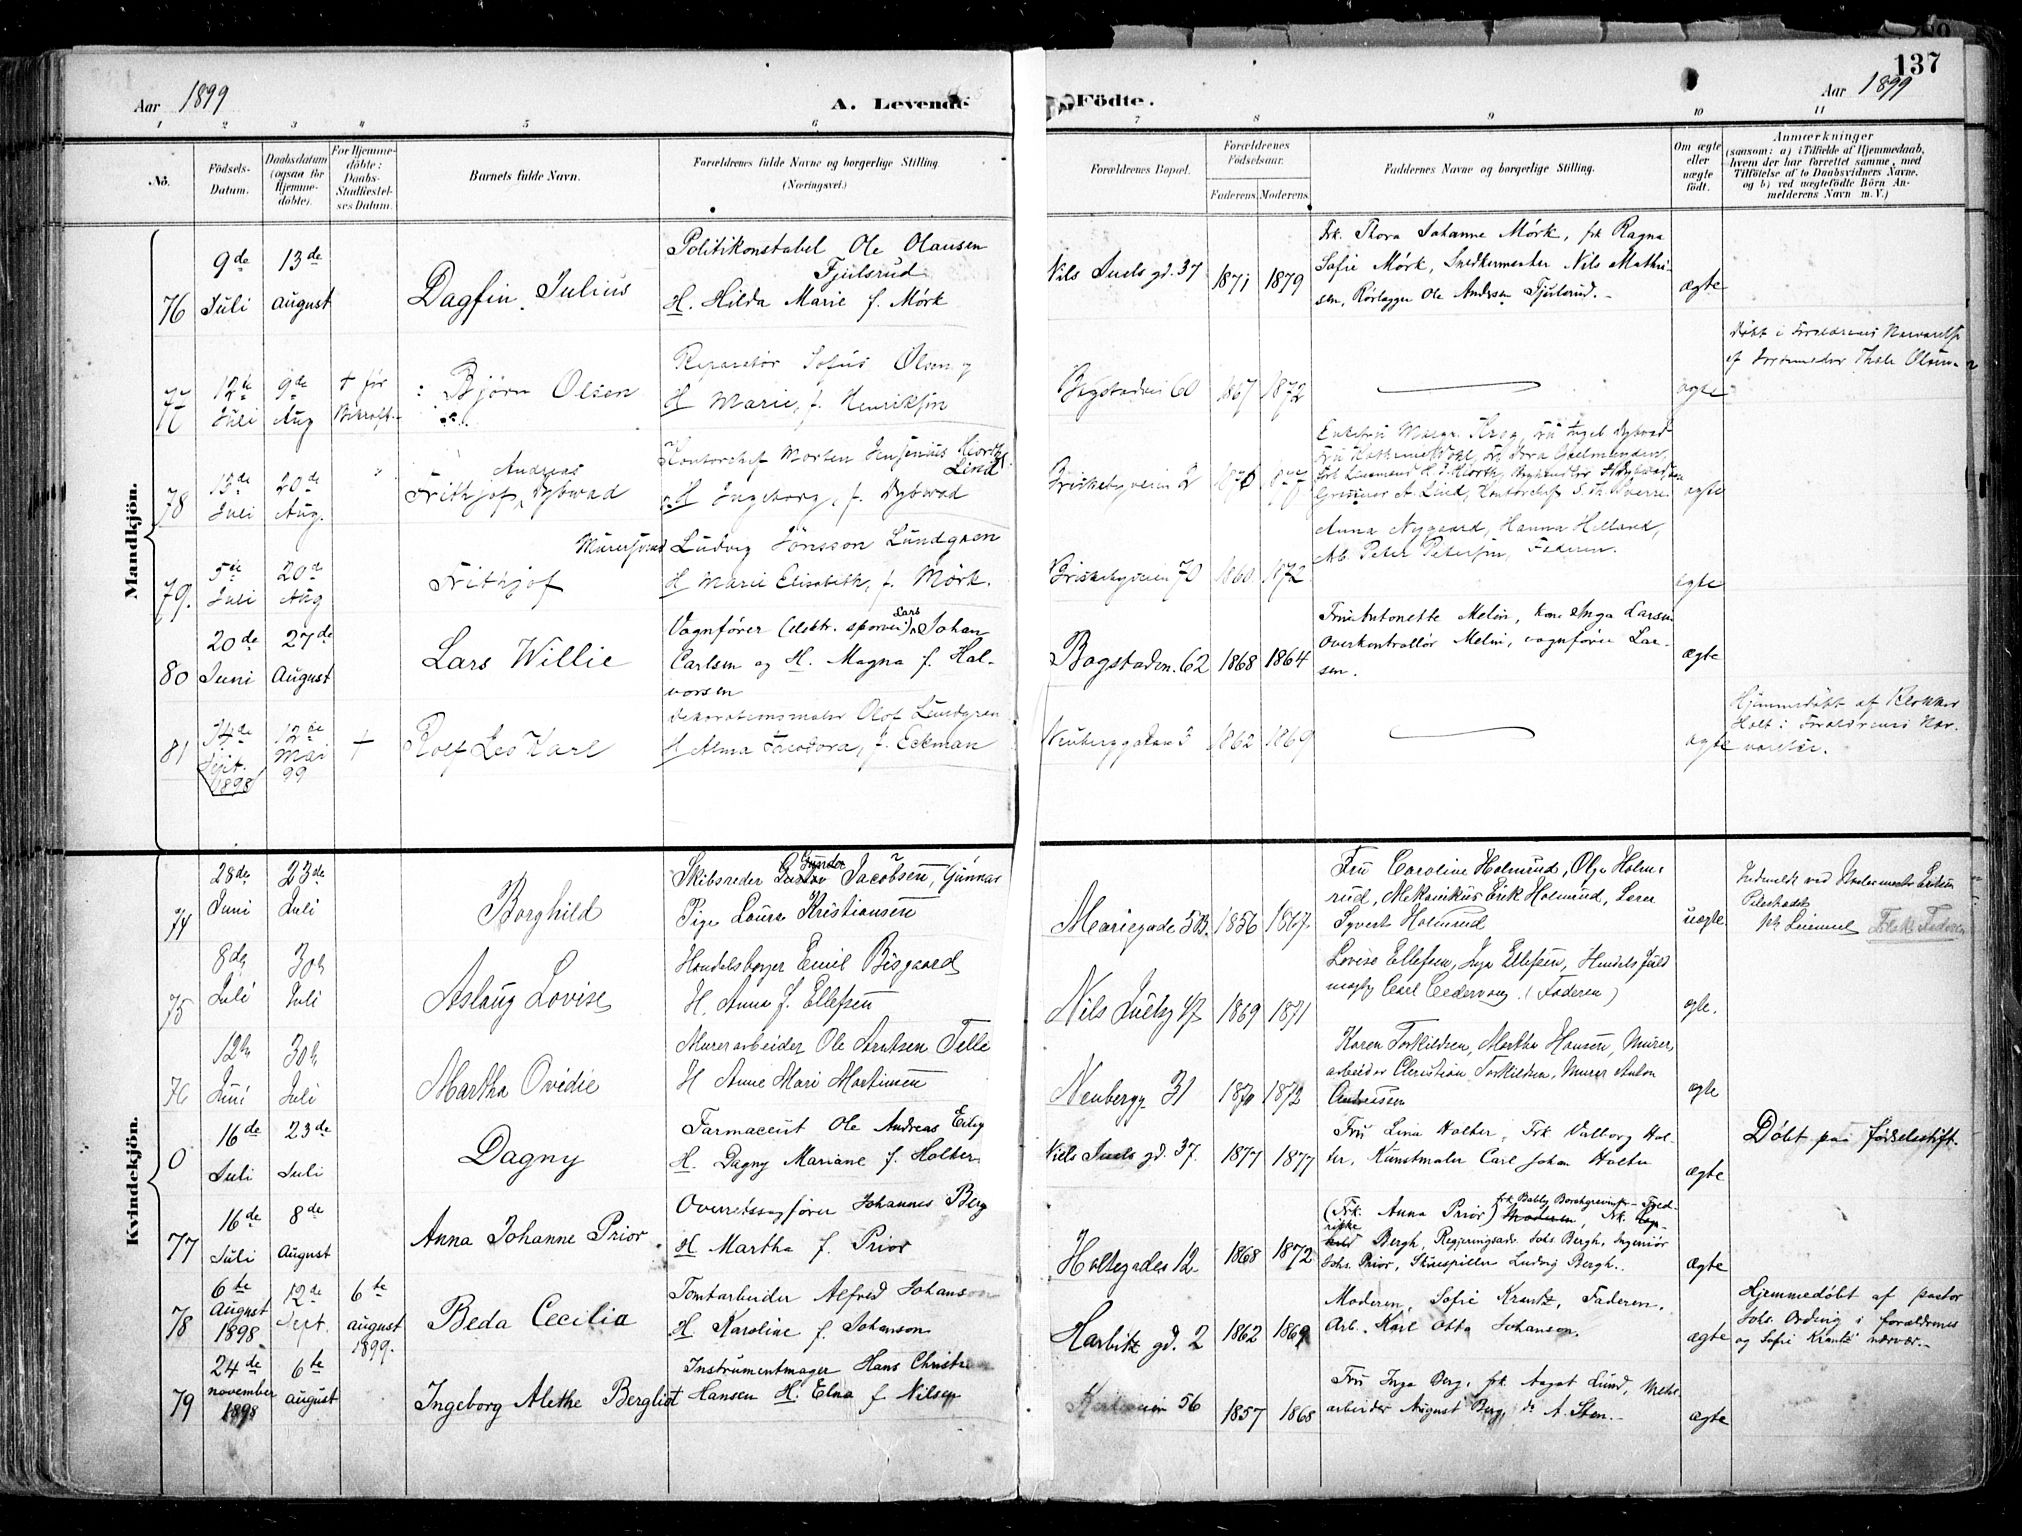 137
Aar 1899
A. Levende
Födte.
Aar 1899
1 2 3 4 5 6 7 8 9 10 11
No.
Födsels-
Datum.
Daabsdatum
(ogsaa for
Hjemme-
döbte).
For Hjemme-
döbte:
Daabs-
Stadfæstel-
ses Datum.
Barnets fulde Navn.
Forældrenes fulde Navne og borgerlige Stilling.
(Næringsvei.)
Forældrenes Bopæl.
Forældrenes
Födselsaar.
Faderens. Moderens.
Faddernes Navne og borgerlige Stilling.
Om ægte
eller
uægte
födt.
Anmærkninger
(saasom: a) i Tilfælde af Hjemmedaab,
hvem der har forrettet samme, med
Tilföielse af to Daabsvidners Navne,
og b) ved uægtefödte Börn An-
melderens Navn m. V.)
Mandkjön.
76
9de
Juli
13de
august
Dagfin Julius
Politikonstabel Ole Olausen
Fjeilsrud
H. Hilda Marie f. Mörk
Nils Juels gd. 37
1871 1879
Frk. Thora Johanne Mörk, frk Ragna
Sofie Mörk, Snedkermester Nils Mathi-
sen, Rörlægger Ole Andersen Fjeilsrud.
ægte
77
12te
Juli
9de
Aug
+ før
Bekræft.
Björn Olsen
Reparatör Sofus Olsen og
H Marie, f. Henriksen
Bogstadvei 60
1867 1872
ægte
Døbt i Forældrenes Nærværelse
af Jordemoder Thale Olsen
78
13de
Juli
20de
Aug.
Andreas
Frithjof Dybwad
Kontorchef Morten Jensenius Hiorth
Lind
H Ingeborg, f. Dybwad
Briskebyveien 2
ægte
79.
5te
Juli
20de
Aug
Frithjof
Murersvend Ludvig Jönsson Lundgren
H Marie Elisabeth, f. Mörk.
Briskebyveien 70
1860 1872
Anna Nygaard, Hanna Helland,
Arb. Peter Petersen, Faderen.
ægte
80
20de
Juni
27de
August
Lars Willie
Vognfører (elektr. sporvei) Lars Johan
Carlsen og H. Magna f. Hal-
vorsen
Bogstadvn. 62
1868 1864
Fru Antonette Melin, kone Inga Larsen
Overkontrollör Melin, vognfører Lar-
sen.
ægte
81
14de
Sept.
1898
12de
Mai
99
+
Rolf Leo Karl
Dekorationsmaler Olof Lundgren
H Alma Teodora, f. Eckman
Neuberggaden 3
1862 1869
ægte
Hjemmedøbt af Klokker
Holt i Forældrenes Nær-
værelse.
Kvindekjön.
74
28de
Juni
23de
Juli
Borghild
Skibsreder Gustav Jacobsen, Gunnar
Pige Laura Kristiansen
Mariegade 5B.
1856 1867.
Fru Caroline Holmrud, Olga Holm-
rud, Mekanikus Erik Holmrud, Lærer
Syvert Holmrud
uægte
75
8de
Juli
30te
Juli
Aslaug Lovise
Handelsborger Emil Bisgaard
H. Anna f. Ellefsen
Nils Juelsg 47
1869 1871
Lovise Ellefsen, Inga Ellefsen, Handelsfuld
mægtg Carl Cedervang. (Faderen)
ægte.
76
12te
Juni
30te
Juli
Martha Ovidie
Murerarbeider Ole Arntsen Telle
H Anne Mari Martinsen
Neubergg 31
1870 1872
Karen Torkildsen, Martha Hansen, Murer,
arbeider Christian Torkildsen, Murer Anton
Andreasen
ægte
0
16de
Juli
23de
Juli
Dagny
Farmaceut Ole Andreas Eeby
H. Dagny Mariane f. Holter
Niels Juels gd. 37.
1877 1877
Fru Lina Holter, Frk Valborg Hol-
ter, Kunstmaler Carl Johan Holter
ægte
Döbt paa fødselsstift.
77
16de
Juli
8de
August
Anna Johanne Prior
Overretssagfører Johannes Berg
H. Martha f. Prior
Holtegades 12
1868 1872
(Frk. Anna Prior) Moderen, Frk.
Bergh, Regjeringsadv. Johs Bergh, Ingeniör
Johs. Prior, Skuespiller Ludvig Bergh.
ægte
78
6te
August
1898
12de
Sept.
6te
august
1899.
Beda Cecilia
Tomtarbeider Alfred Johanson
H Karoline f. Johanson
Harbitz gd. 2
1862 1869
Moderen, Sofie Krantz, Faderen,
Arb. Karl Otto Johanson.
ægte
Hjemmedøbt af pastor
Johs. Ording i forældrenes
og Sofie Krantz nærvær.
79
24de
november
1898
6te
august
Ingeborg Alethe Bergliot
Instrumentmager Hans Christian
Hansen H. Elna f Nilsen
56
1857 1868
Fru Inga Berg, frk Aagot Lund, Mek.
arbeider August Berg, do A. Sten.
ægte